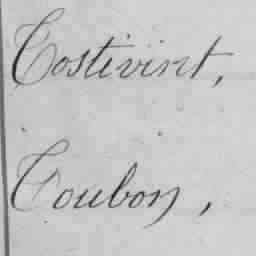 Costivint,
Coubon,